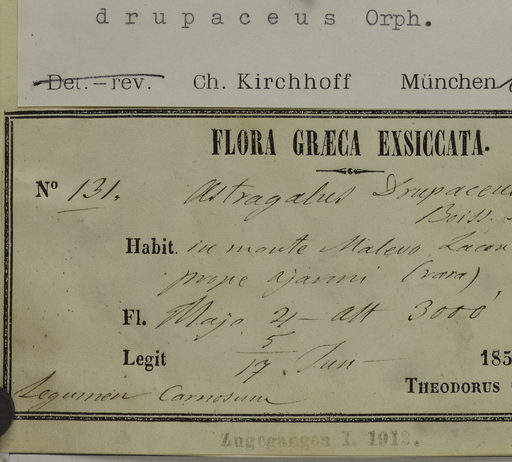 drupaceus Orph.
Det.-rev. Ch. Kirchhoff München
FLORA GRÆCA EXSICCATA.
Nº 131. Astragalus Drupaceus
Boiss.
Habit. in monte Malevo Lacon
prope ajanni (rara)
Fl. Majo ♃ - Alt 3000'
Legit 5/17. Jun - 185
THEODORUS
Legumen Carnosum
Zugegangen I. 1912.